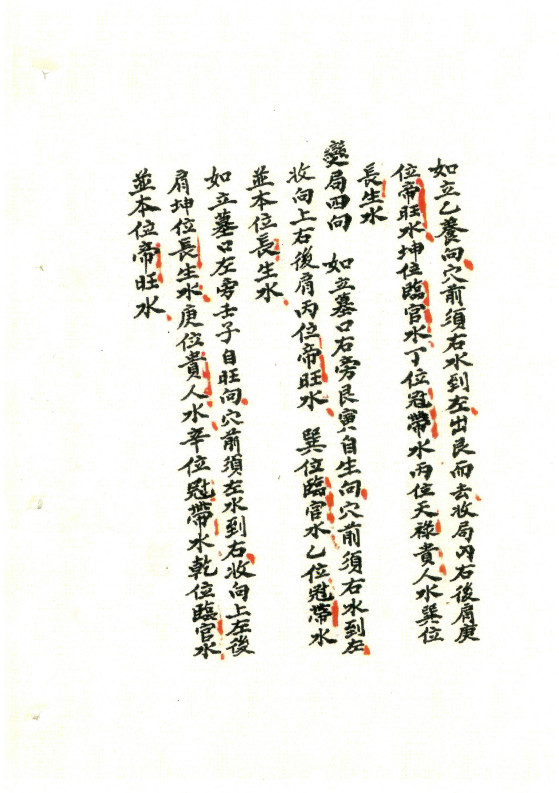 如立乙養向穴前須右水到左出艮而去收局內右後肩庚
位帝旺水坤位臨官水丁位冠帶水丙位天祿貴人水巽位
長生水
變局四向　如立墓口右旁艮寅自生向穴前須右水到左
收向上右後肩丙位帝旺水　巽位臨官水乙位冠帶水
並本位長生水
如立墓口左旁壬子自旺向穴前須左水到右收向上左後
肩坤位長生水庚位貴人水辛位冠帶水乾位臨官水
並本位帝旺水